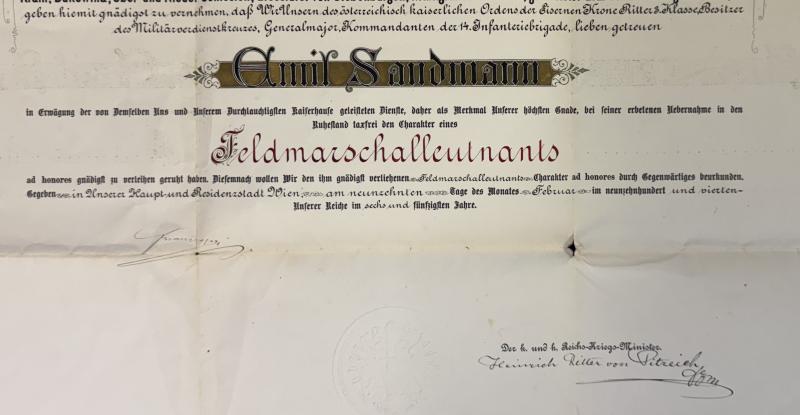 geben hiemit gnädigst zu vernehmen, daß Wir Unsern des österreichisch kaiserlichen Ordens der Eisernen Krone Ritter 3. Klasse, Besitzer
des Militärverdienstkreuzes, Generalmajor, Kommandanten der 14. Infanteriebrigade, lieben getreuen
Emil Sandmann
in Erwägung der von Demselben Uns und Unserem Durchlauchtigsten Kaiserhause geleisteten Dienste, daher als Merkmal Unserer höchsten Gnade, bei seiner erbetenen Uebernahme in den
Ruhestand taxfrei den Charakter eines
Feldmarschalleutnants
ad honores gnädigst zu verleihen geruht haben. Diesemnach wollen Wir den ihm gnädigst verliehenen Feldmarschalleutnants Charakter ad honores durch Gegenwärtiges beurkunden.
Gegeben in Unserer Haupt und Residenzstadt Wien, am neunzehnten Tage des Monates Februar im neunzehnhundert und vierten
Unserer Reiche im sechs und fünfzigsten Jahre.
Der k. und k. Reichs-Kriegs-Minister.
Heinrich Ritter von Pitreich
FZM